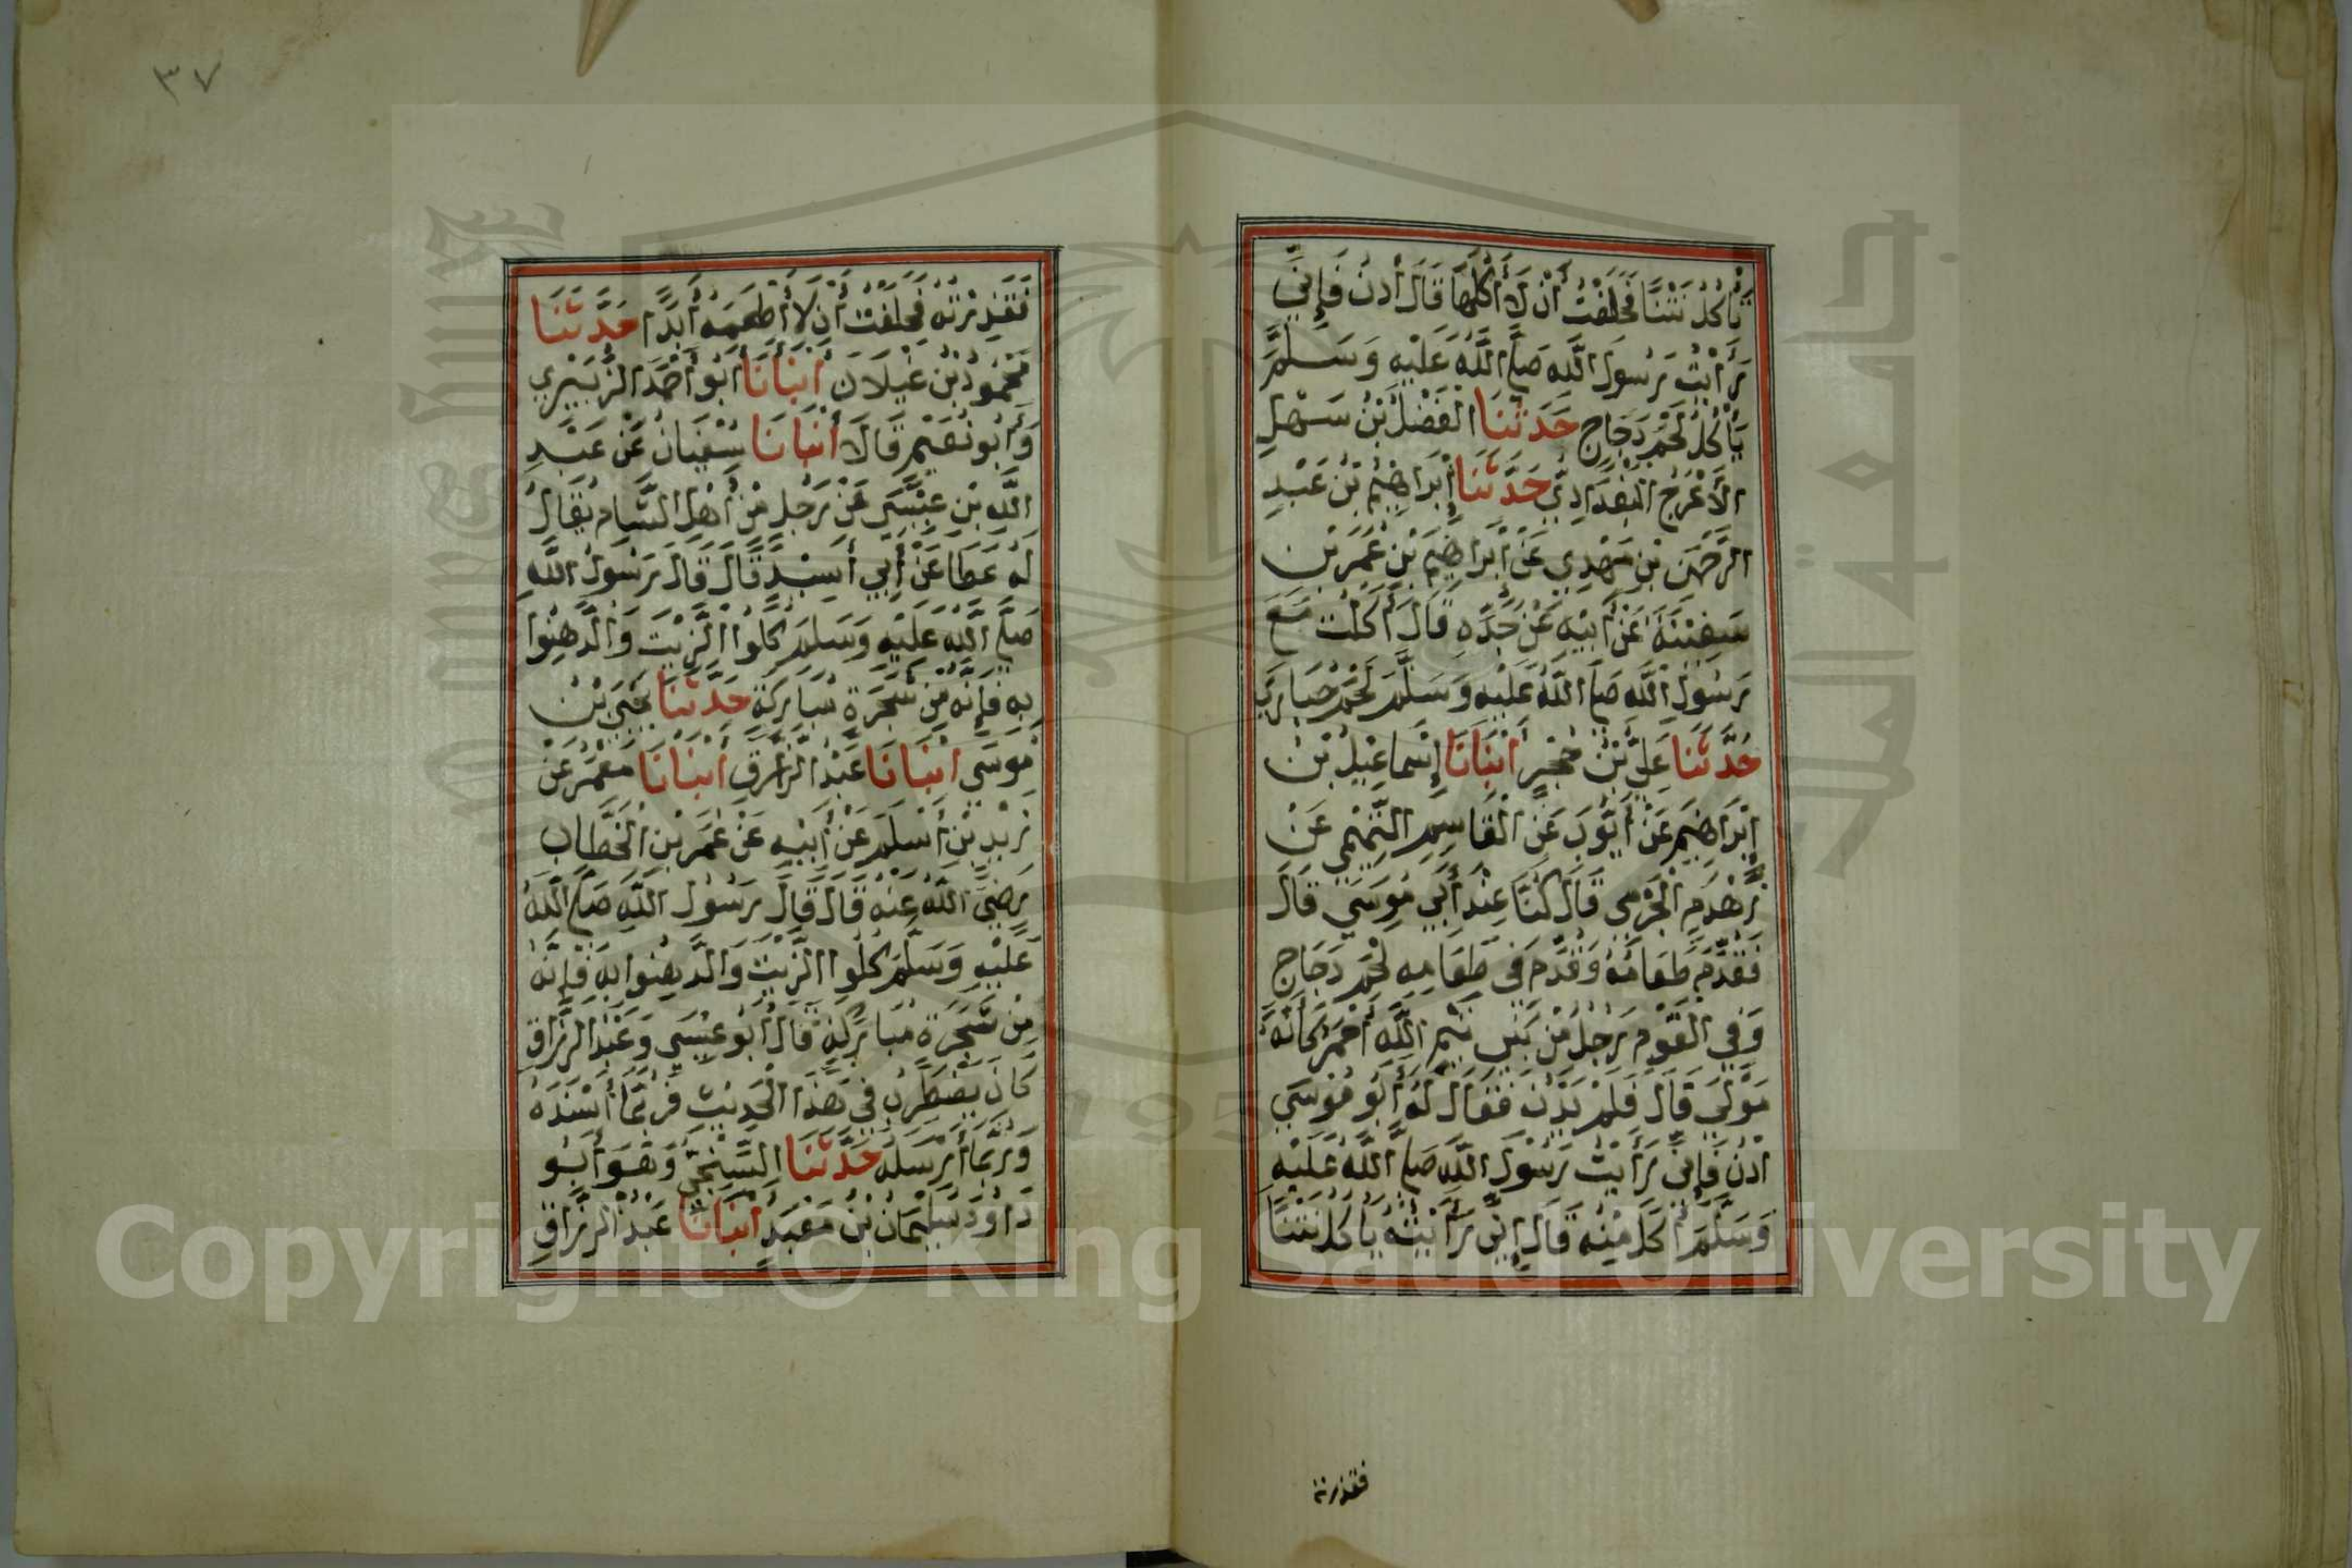 يَأْكُلُ نَتْنًا فَحَلَفْتُ أَنْ لَا أَكُلَهَا قَالَ أُدْنُ فَإِنِّي
رَأَيْتُ رَسُولَ اللَّهِ صَلَّى اللَّهُ عَلَيْهِ وَسَلَّمَ
يَأْكُلُ لَحْمَ دَجَاجٍ حَدَّثَنَا الْفَضْلُ بْنُ سَهْلٍ
الْأَعْرَجُ الْبَغْدَادِيُّ حَدَّثَنَا إِبْرَاهِيمُ بْنُ عَبْدِ
الرَّحْمَنِ بْنِ مَهْدِي عَنْ إِبْرَاهِيمَ بْنِ عُمَرَ بْنِ
سَفِيْنَةَ عَنْ أَبِيْهِ عَنْ جَدِّهِ قَالَ أَكَلْتُ مَعَ
رَسُولِ اللَّهِ صَلَّى اللَّهُ عَلَيْهِ وَسَلَّمَ لَحْمَ حُبَارَى
حَدَّثَنَا عَلِيُّ بْنُ حُجْرٍ أَنْبَانَا إِسْمَاعِيْلُ بْنُ
إِبْرَاهِيْمَ عَنْ أَيُّوبَ عَنِ الْقَاسِمِ التَّمِيْمِي عَنْ
زَهْدَمِ الْجَرْمِي قَالَ كُنَّا عِنْدَ أَبِي مُوسَى قَالَ
فَقُدِّمَ طَعَامُهُ وَقُدِّمَ فِي طَعَامِهِ لَحْمُ دَجَاجٍ
وَفِي الْقَوْمِ رَجُلٌ مِنْ بَنِي تَيْمِ اللَّهِ أَحْمَرُ كَأَنَّهُ
مَوْلَى قَالَ فَلَمْ يَدْنُ فَقَالَ لَهُ أَبُو مُوسَى
أُدْنُ فَإِنِّي رَأَيْتُ رَسُولَ اللَّهِ صَلَّى اللَّهُ عَلَيْهِ
وَسَلَّمَ أَكَلَ مِنْهُ قَالَ إِنِّي رَأَيْتُهُ يَأْكُلُ نَتْنًا
فقذرته
٣٧
فَقَذِرْتُهُ فَحَلَفْتُ أَنْ لَا أَطْعَمَهُ أَبَدًا حَدَّثَنَا
مَحْمُودُ بْنُ غَيْلَانَ أَنْبَأَنَا أَبُو أَحْمَدَ الزُّبَيْرِي
وَأَبُو نُعَيْمٍ قَالَا أَنْبَانَا سُفْيَانُ عَنْ عَبْدِ
اللَّهِ بْنِ عِيْسَى عَنْ رَجُلٍ مِنْ أَهْلِ الشَّامِ يُقَالُ
لَهُ عَطَا عَنْ أَبِي أَسِيْدٍ قَالَ قَالَ رَسُولُ اللَّهِ
صَلَّى اللَّهُ عَلَيْهِ وَسَلَّمَ كُلُوا الزَّيْتَ وَادَّهِنُوا
بِهِ فَإِنَّهُ مِنْ شَجَرَةٍ مُبَارَكَةٍ حَدَّثَنَا يَحْيَى بْنُ
مُوسَى أَنْبَانَا عَبْدُ الرَّزَّاقِ أَنْبَانَا مَعْمَرٌ عَنْ
زَيْدِ بْنِ أَسْلَمَ عَنْ أَبِيْهِ عَنْ عُمَرَ بْنِ الْخَطَّابِ
رَضِيَ اللَّهُ عَنْهُ قَالَ قَالَ رَسُولُ اللَّهِ صَلَّى اللَّهُ
عَلَيْهِ وَسَلَّمَ كُلُوا الزَّيْتَ وَادَّهِنُوا بِهِ فَإِنَّهُ
مِنْ شَجَرَةٍ مُبَارَكَةٍ قَالَ أَبُو عِيْسَى وَعَبْدُ الرَّزَّاقِ
كَانَ يَضْطَرِبُ فِي هَذَا الْحَدِيْثِ فَرُبَّمَا أَسْنَدَهُ
وَرُبَّمَا أَرْسَلَهُ حَدَّثَنَا السِّنْجِيُّ وَهُوَ أَبُو
دَاوُدَ سُلَيْمَانُ بْنُ مَعْبَدٍ أَنْبَانَا عَبْدُ الرَّزَّاقِ
Copyright © King Saud University